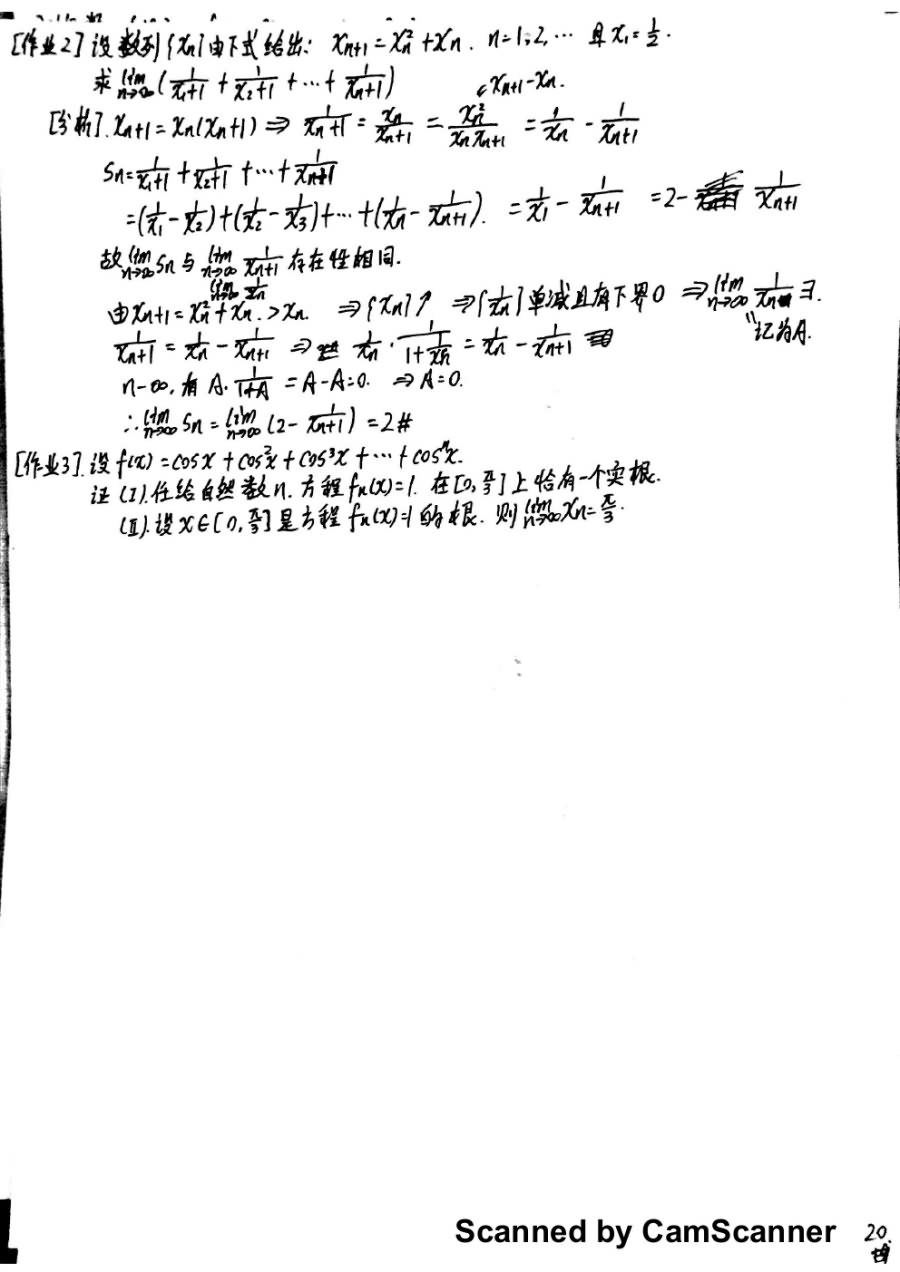 [作业2] 设数列{xn}由下式给出: xn+1 = xn² + xn. n=1,2,… 且 x1 = 1/2.
求 lim n→∞ (1/(x1+1) + 1/(x2+1) + … + 1/(xn+1))
xn+1 - xn.
[分析]. xn+1 = xn(xn+1) ⇒ 1/(xn+1) = xn/xn+1 = xn²/(xn xn+1) = 1/xn - 1/xn+1
Sn = 1/(x1+1) + 1/(x2+1) + … + 1/(xn+1)
= (1/x1 - 1/x2) + (1/x2 - 1/x3) + … + (1/xn - 1/xn+1). = 1/x1 - 1/xn+1 = 2 - 1/xn+1
故 lim n→∞ Sn 与 lim n→∞ 1/xn+1 存在性相同.
lim n→∞ 1/xn
由 xn+1 = xn² + xn. > xn. ⇒ {xn}↑ ⇒ {1/xn} 单减且有下界0 ⇒ lim n→∞ 1/xn ∃.
" 记为A.
1/(xn+1) = 1/xn - 1/xn+1 ⇒ 1/xn · 1/(1+1/xn) = 1/xn - 1/xn+1
n→∞, 有 A · 1/(1+A) = A - A = 0. ⇒ A = 0.
∴ lim n→∞ Sn = lim n→∞ (2 - 1/xn+1) = 2 #
[作业3]. 设 f(x) = cosx + cos²x + cos³x + … + cosⁿx.
证 (I). 任给自然数n. 方程 fn(x)=1. 在[0, π/3]上恰有一个实根.
(II). 设 x∈[0, π/3] 是方程 fn(x)=1 的根. 则 lim n→∞ xn = π/3.
Scanned by CamScanner
20.